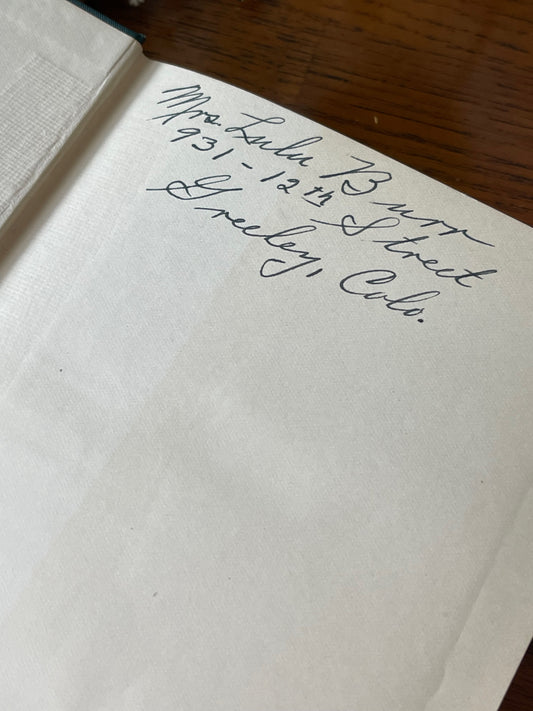 Mrs. Lulu Burr
931-12th Street
Greeley, Colo.